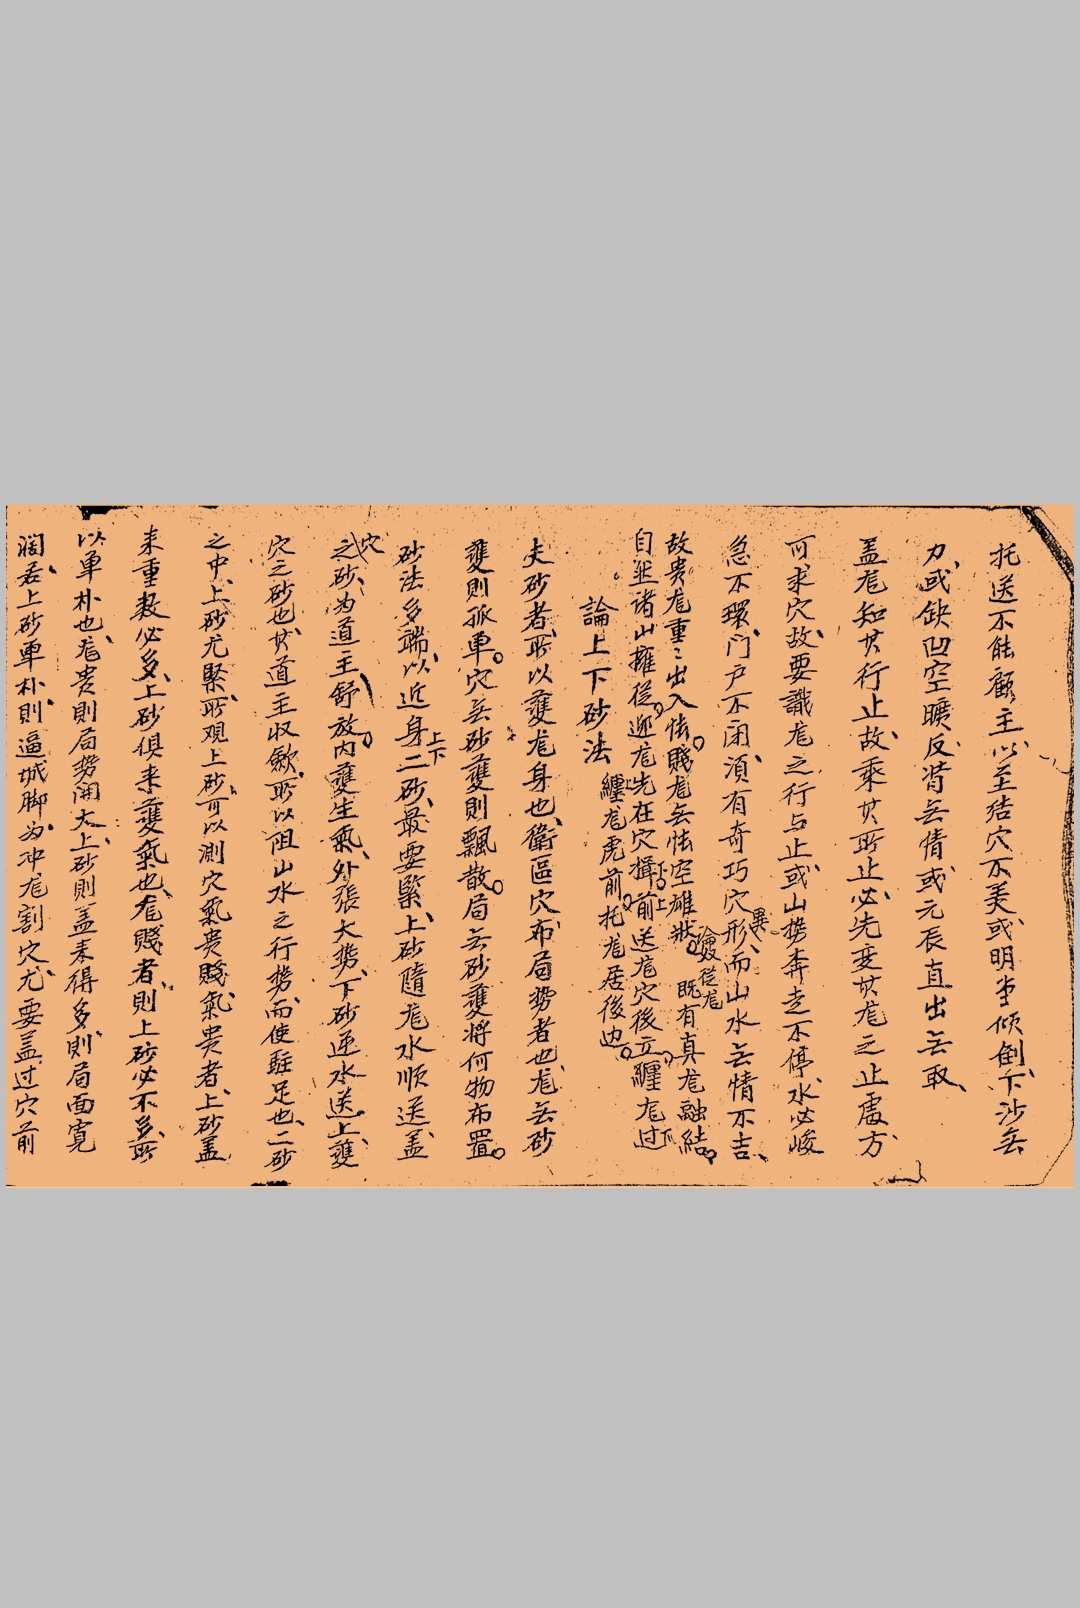 托送不能顧主以至结穴不美或明堂倾倒下沙无
力或缺凹空曠反背无情或元辰直出无取
盖尨知其行止故乘其所止必先变其尨之止處方
可求穴故要識尨之行与止或山势奔走不停水必峻
急不環门户不闭須有奇巧穴形異而山水无情不吉
故贵尨重々出入怯賤尨无怯空雄状 既有真尨融結
自然诸山擁從迎尨先在穴前送尨穴後立纏尨过
纏尨虎前托尨居後边
論上下砂法
夫砂者所以護尨身也衛區穴布局势者也尨无砂
護則孤单穴无砂護則飄散局无砂護将何物布置
砂法多端以近身上下二砂最要緊上砂隨尨水順送盖
穴之砂为道主舒放内護生氣外張大势下砂逆水送上護
穴之砂也其道主收歛所以阻山水之行势而使駐足也二砂
之中上砂尤緊所观上砂可以測穴氣贵賤氣贵者上砂盖
来重数必多上砂俱来護氣也尨賤者則上砂必不多所
以单朴也尨贵則局势開大上砂則盖来得多則局面寬
濶若上砂单朴則逼城脚为冲尨割穴尤要盖过穴前